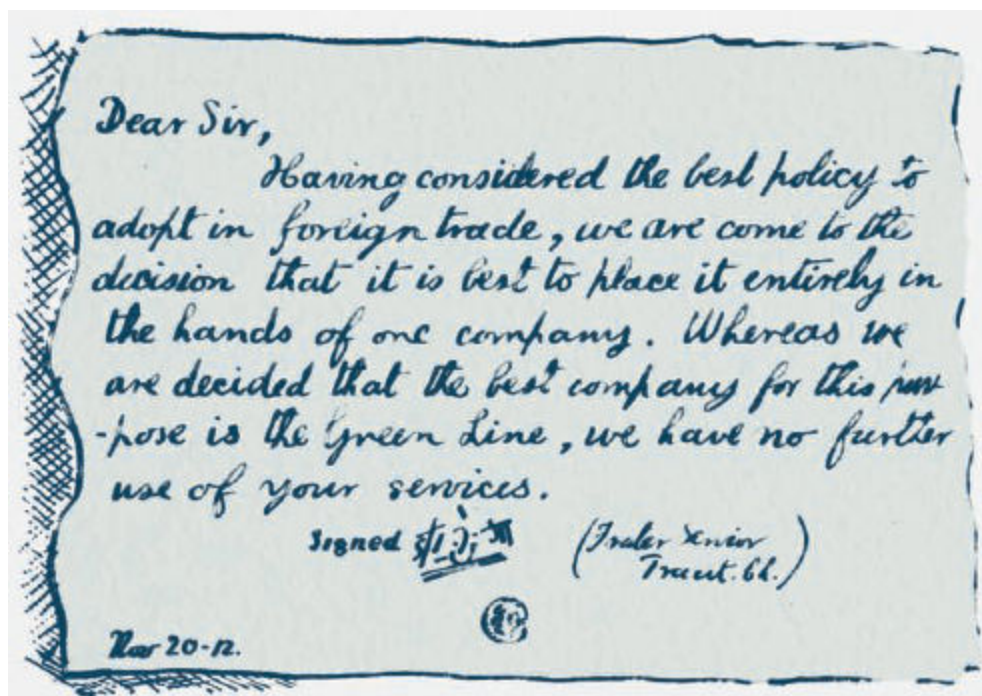 Dear Sir,
Having considered the best policy to
adopt in foreign trade, we are come to the
decision that it is best to place it entirely in
the hands of one company. Whereas we
are decided that the best company for this pur
-pose is the Green Line, we have no further
use of your services.
Signed
(Trader Senior
Nov 20-12.